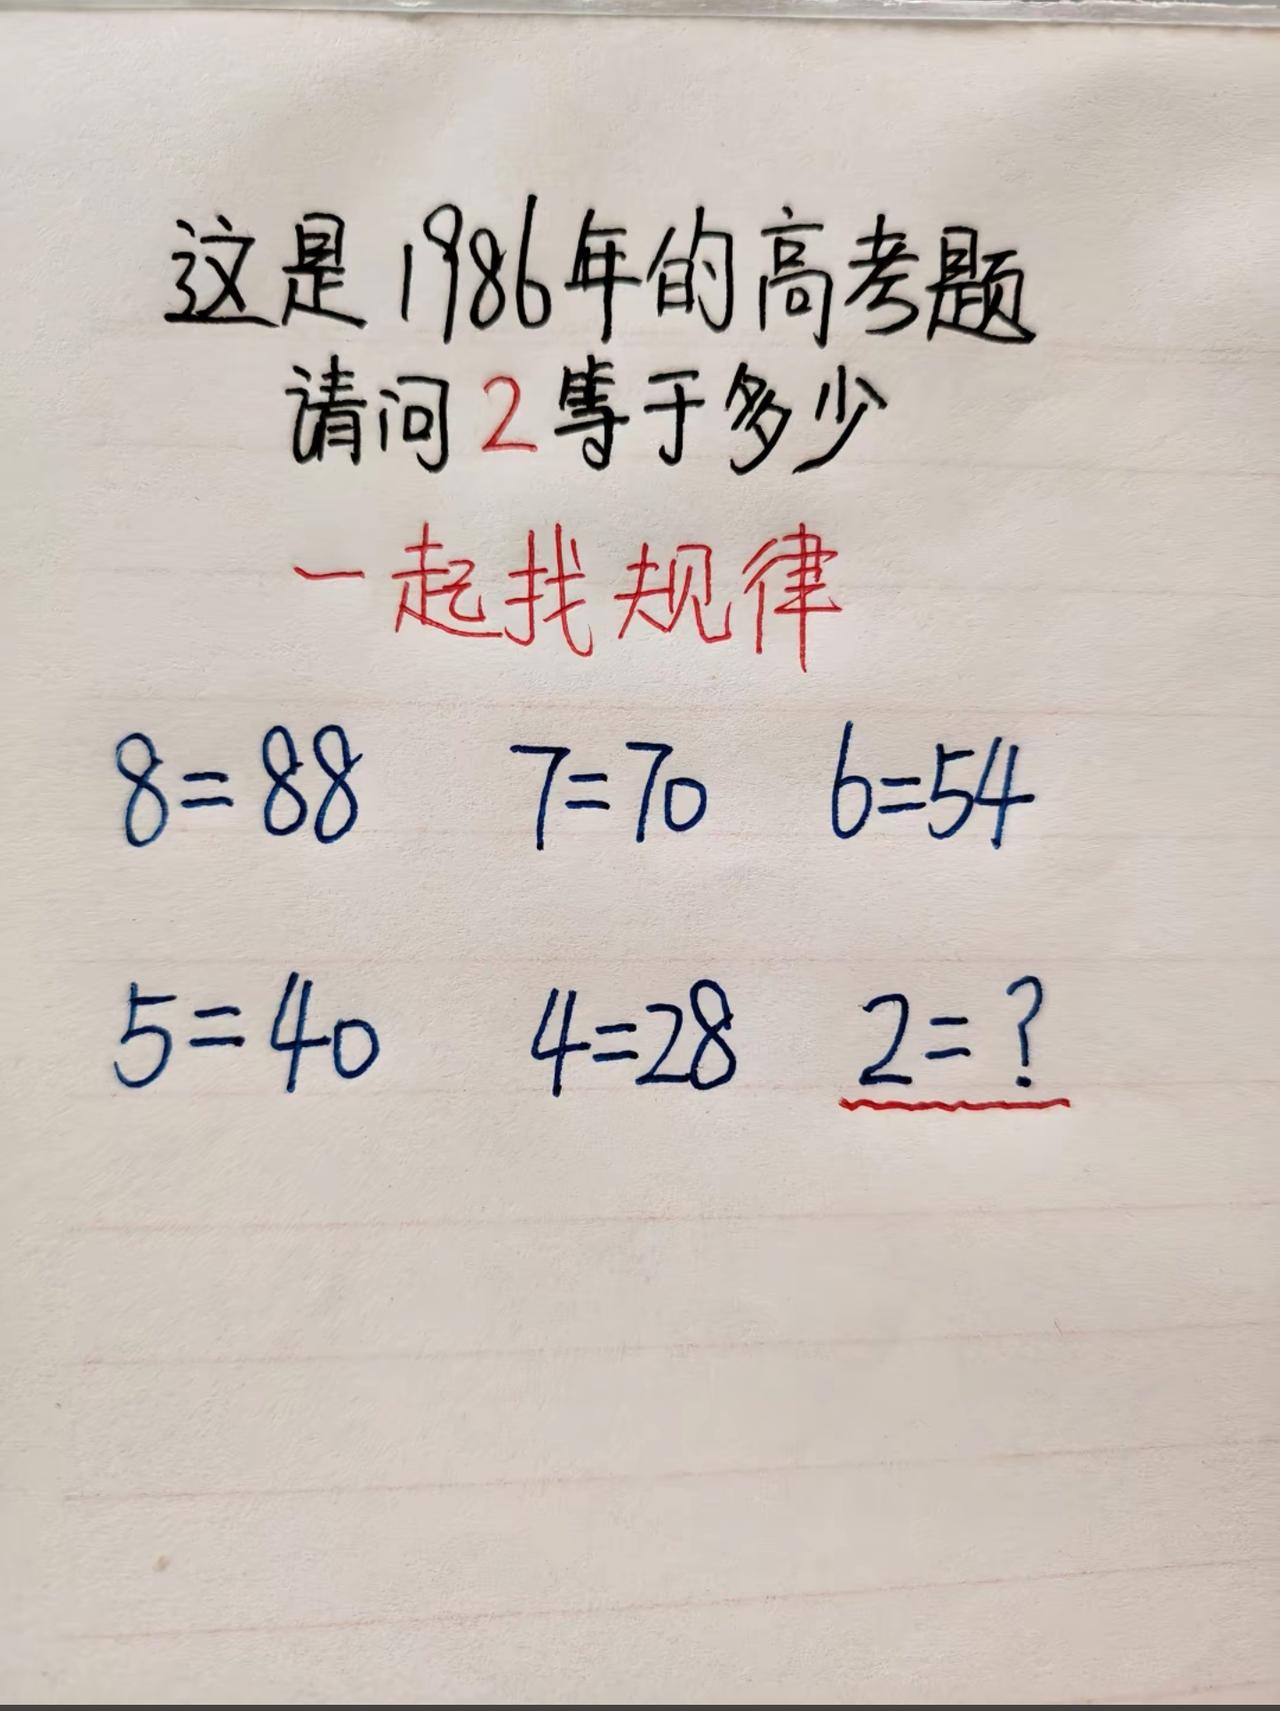 这是1986年的高考题
请问2等于多少
一起找规律
8=88 7=70 6=54
5=40 4=28 2=?